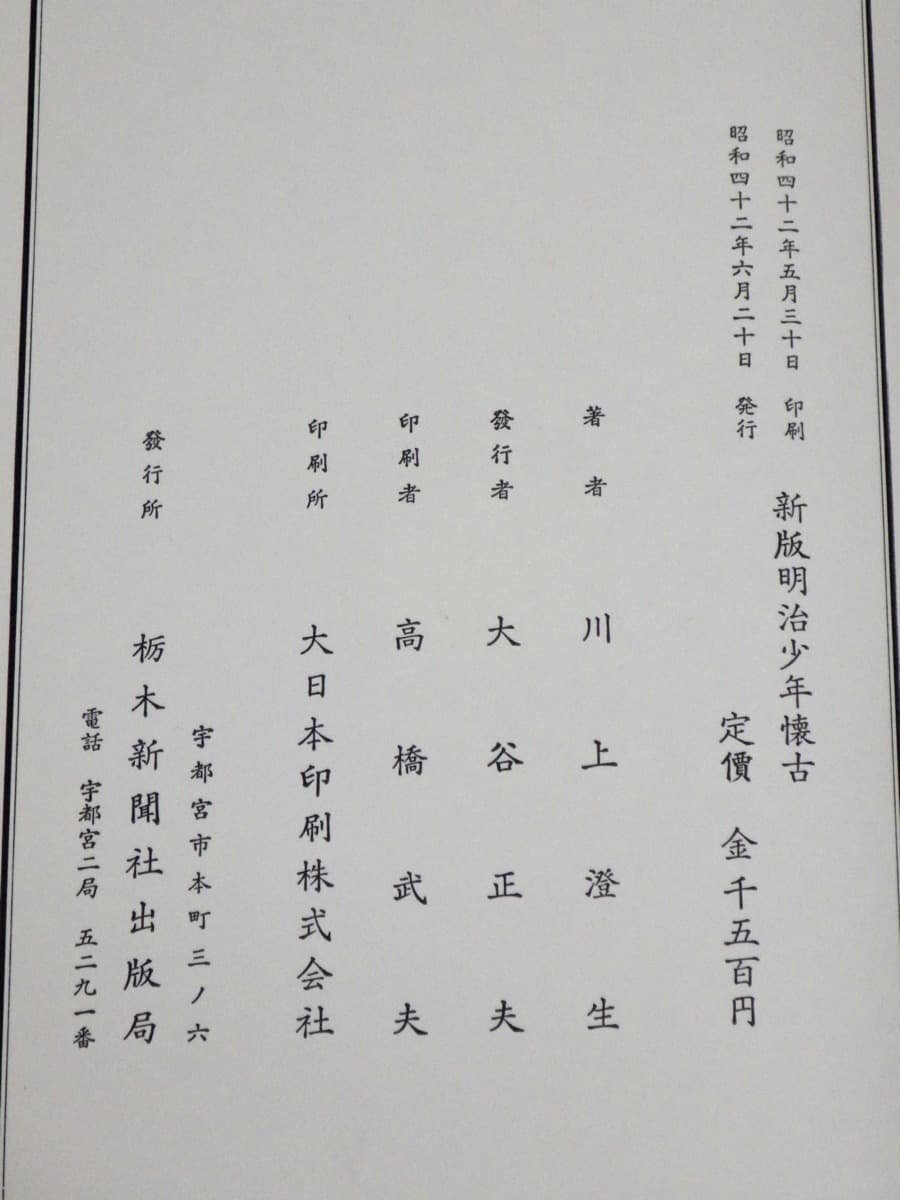 昭和四十二年五月三十日 印刷
昭和四十二年六月二十日 発行
新版明治少年懐古
定價 金千五百円
著者 川上澄生
發行者 大谷正夫
印刷者 高橋武夫
印刷所 大日本印刷株式会社
宇都宮市本町三ノ六
發行所 栃木新聞社出版局
電話 宇都宮二局 五二九一番